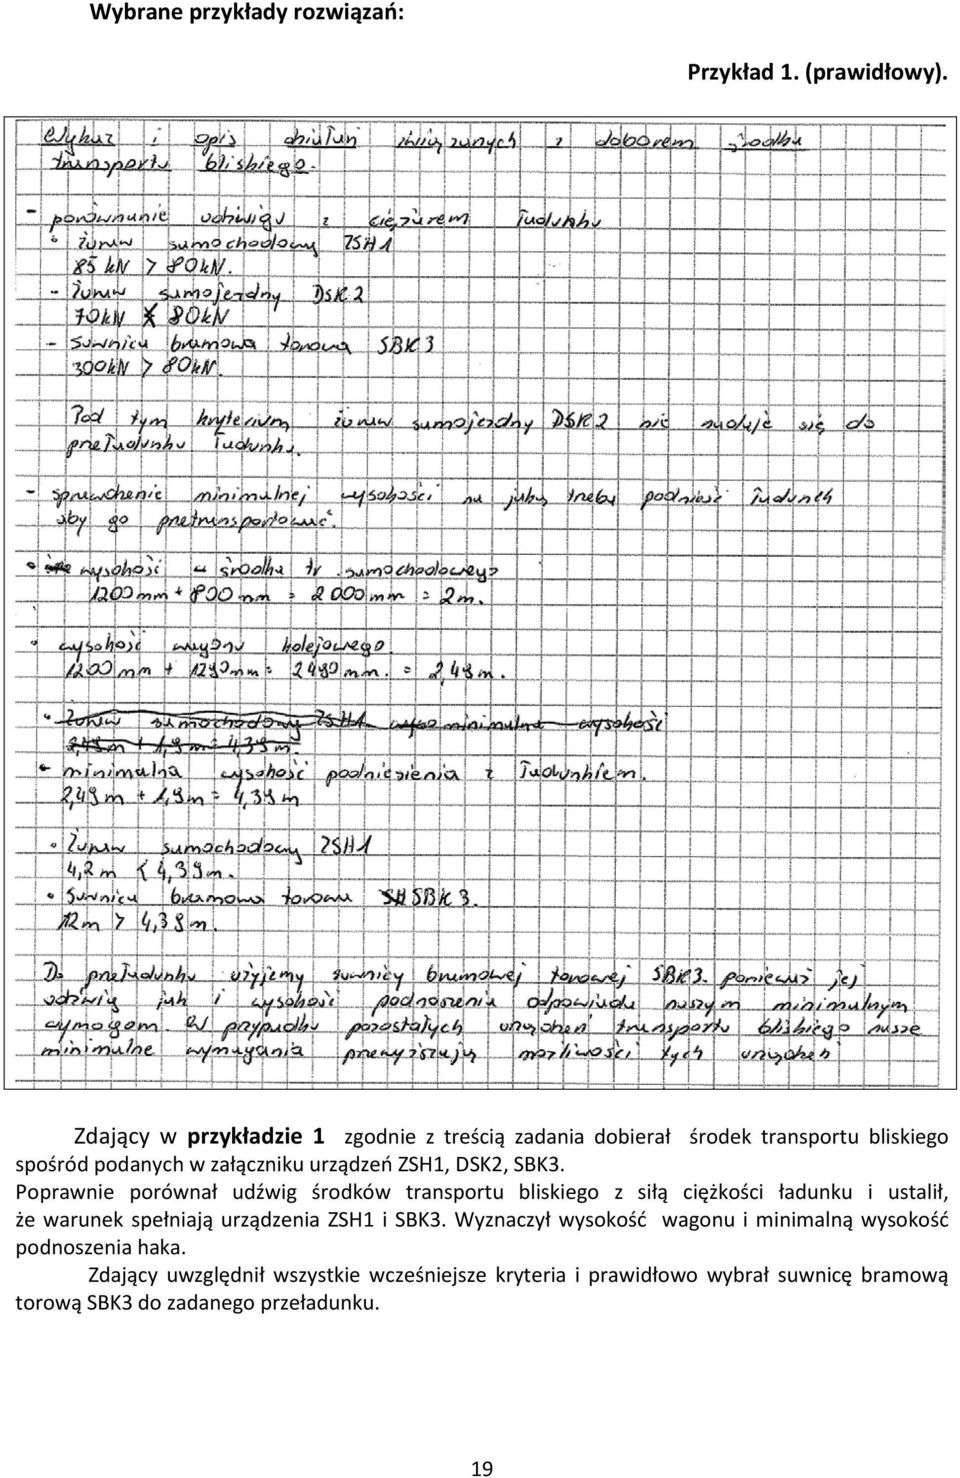 Wybrane przykłady rozwiązań:
Przykład 1. (prawidłowy).
Wykaz i opis działań związanych z doborem środka
transportu bliskiego.
- porównanie udźwigu z ciężarem ładunku
• żuraw samochodowy ZSH1
85 kN > 80kN.
- żuraw samojezdny DSK2
70kN 80kN
- Suwnica bramowa torowa SBK3
300kN > 80kN.
Pod tym kryterium żuraw samojezdny DSK2 nie nadaje się do
przeładunku ładunku.
- sprawdzenie minimalnej wysokości na jaką trzeba podnieść ładunek
aby go przetransportować.
• wysokość środka tr. samochodowego
1200mm + 800mm = 2000mm = 2m.
• wysokość wagonu kolejowego
1200mm + 1290mm = 2490mm. = 2,49m.
• Żuraw samochodowy ZSH1 minimalna wysokość
2,49m + 1,9m = 4,39m.
- minimalna wysokość podniesienia z ładunkiem.
2,49m + 1,9m = 4,39m
• Żuraw samochodowy ZSH1
4,2m < 4,39m.
• Suwnica bramowa torowa SBK3.
12m > 4,39m.
Do przeładunku użyjemy suwnicy bramowej torowej SBK3. ponieważ jej
udźwig jak i wysokość podnoszenia odpowiada naszym minimalnym
wymogom. W przypadku pozostałych urządzeń transportu bliskiego nasze
minimalne wymagania przewyższają możliwości tych urządzeń
Zdający w przykładzie 1 zgodnie z treścią zadania dobierał środek transportu bliskiego
spośród podanych w załączniku urządzeń ZSH1, DSK2, SBK3.
Poprawnie porównał udźwig środków transportu bliskiego z siłą ciężkości ładunku i ustalił,
że warunek spełniają urządzenia ZSH1 i SBK3. Wyznaczył wysokość wagonu i minimalną wysokość
podnoszenia haka.
Zdający uwzględnił wszystkie wcześniejsze kryteria i prawidłowo wybrał suwnicę bramową
torową SBK3 do zadanego przeładunku.
19